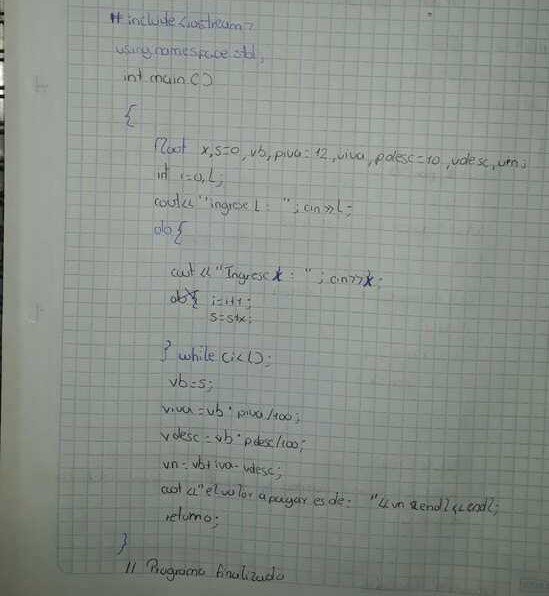 # include <iostream>
using namespace std;
int main ()
{
float x, s=0, vb, piva=12, viva, pdesc=10, vdesc, vn;
int i=0, L;
cout << "ingrese L : "; cin >> L;
do {
cout << "Ingrese x : "; cin >> x;
i=i+1;
s=s+x;
} while (i<L);
vb=s;
viva=vb * piva/100;
vdesc=vb * pdesc/100;
vn=vb+iva-vdesc;
cout << "el valor a pagar es de: " << vn << endl << endl;
return o;
}
// Programa finalizado